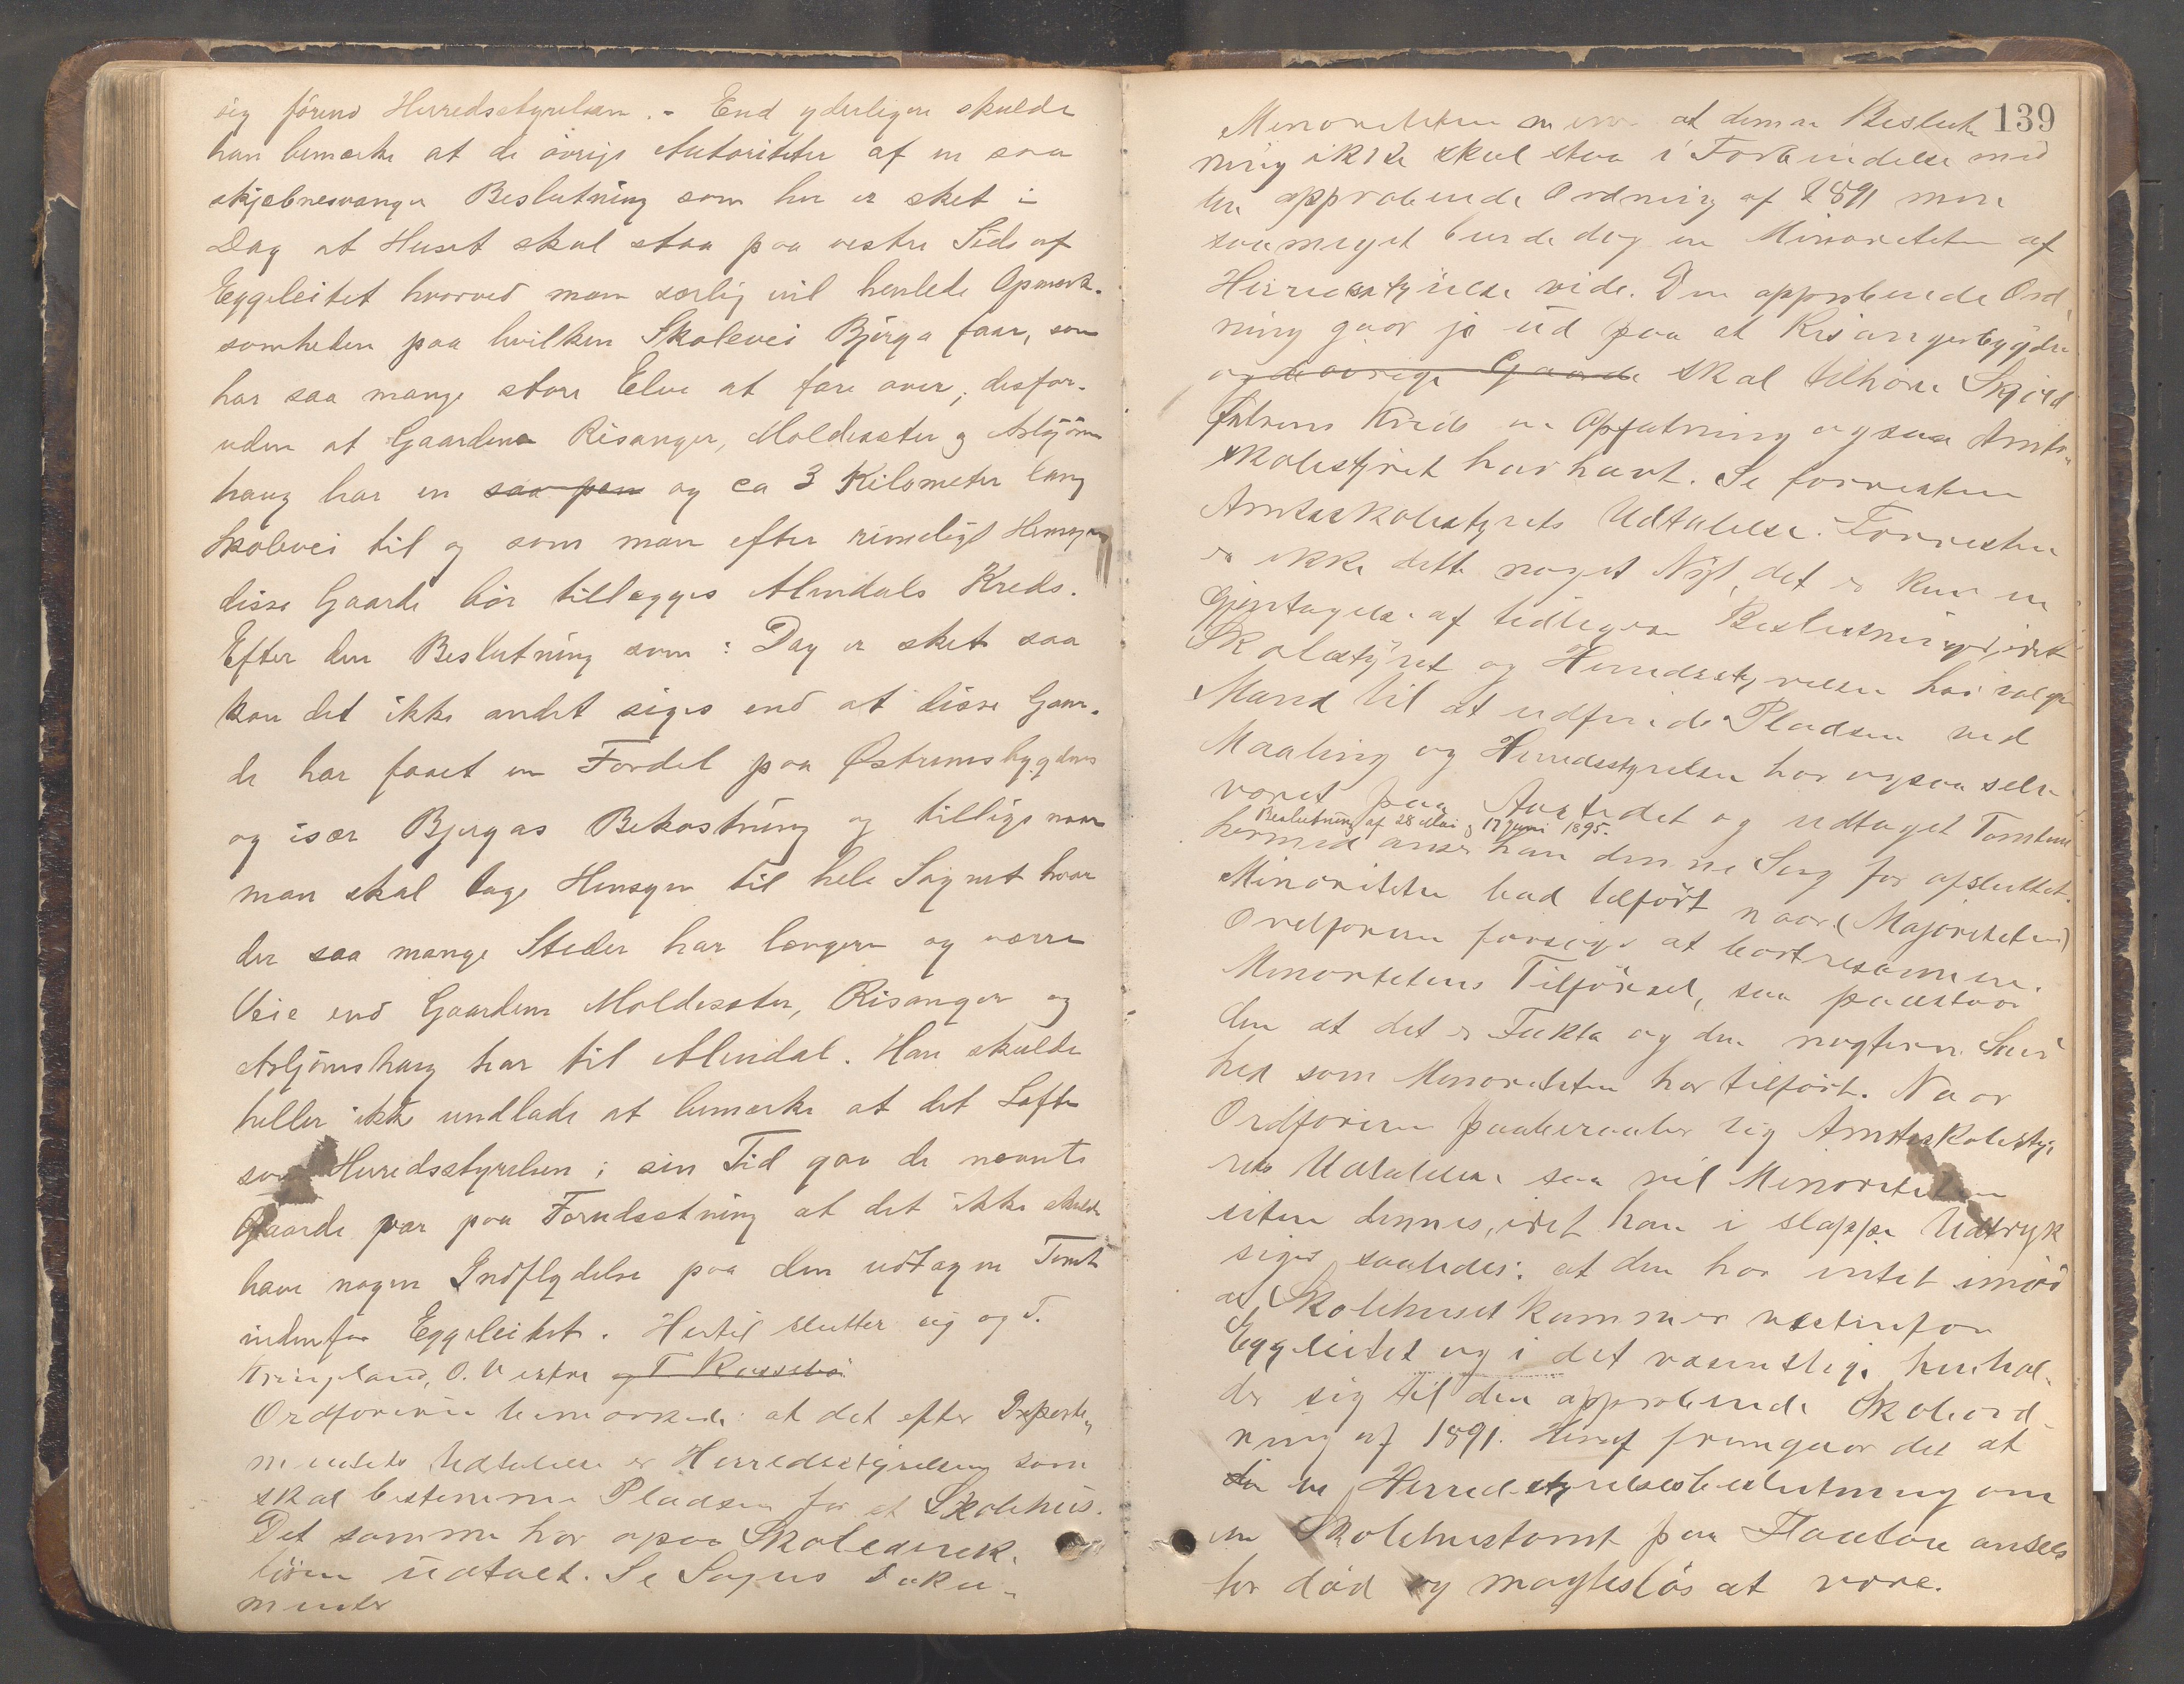 sig förend Herredsstyrelsen. - End yderligere skulde
han bemærke at de övrige Autoriteter af en saa
skjæbnesvanger Beslutning som her er sket i
Dag at Huset skal staa paa vestre Side af
Eggeleitet hvorved man særlig vil henlede Opmærk-
somheden paa hvilken Skolevei Bjerga faar, som
har saa mange store Elve at fare over, desfor-
uden at Gaardene Risanger, Moldesæter og Asbjörns
haug har en saa pen og ca 3 Kilometer lang
Skolevei til og som man efter rimeligt Hensyn
disse Gaarde bör tillægges Alendals Kreds.
Efter den Beslutning som i Dag er sket saa
kan det ikke andet siges end at disse Gaar-
de har faaet en Fordel paa Østremsbygdens
og især Bjergas Bekostning og tillige naar
man skal tage Hensyn til hele Sognet hvor
der saa mange Steder har længere og værre
Veie end Gaardene Moldesæter, Risanger og
Asbjörnshaug har til Alendal. Han skulde
heller ikke undlade at bemærke at det Löfte
som Herredsstyrelsen i sin Tid gav de nævnte
Gaarde var paa Forudsætning at det ikke skulde
have nogen Indflydelse paa den udtagne Tomt
indenfor Eggeleitet. Hertil slutter sig og T.
Tringsland, O. Vestre og T
Ordföreren bemærkede at det efter Departe-
mentets Udtalelse er Herredsstyrelsen som
skal bestemme Pladsen for et Skolehus.
Det samme har ogsaa Skoledirek-
tören udtalt. Se Sagens Doku-
menter
139
Minoriteten mener at denne Beslut
ning ikke skal staa i Forbindelse med
den approberede Ordning af 1891 men
saameget burde dog en Minoritet af
Herredsstyrelse vide. Den approberede Ord
ning gaar jo ud paa at Risangerbygden
og de övrige Gaarde skal tilhöre Skjold
Kreds en Opfatning ogsaa Amts
skolestyret har havt. Se forresten
Amtsskolestyrets Udtalelse. Forresten
er ikke dette noget Nyt, det er kun en
Gjentagelse af tidligere Beslutninger, idet
Skolestyret og Herredsstyrelsen har valgt
Mænd til at udfinde Pladsen ved
Maaling og Herredsstyrelsen har ogsaa selv
været paa Aastedet og udtaget Tomten
Beslutning af 28 Mai og 17 Juni 1895.
hermed anser han denne Sag for afsluttet.
Minoriteten bad tilfört naar (Majoriteten)
Ordföreren forsöger at bortresonnere
Minoritetens Tilförsel, saa paastaar
den at det er Fakta og den nögterne Sand
hed som Minoriteten har tilfört. Naar
Ordföreren paaberaaber sig Amtsskolesty-
rets Udtalelse saa vil Minoriteten
citere dennes, idet han i slappe Udtryk
siges saaledes: at den har intet imod
at Skolehuset kommer vestenfor
Eggeleitet og i det væsentlige henhol-
der sig til den approberede Skoleord-
ning af 1891. Heraf fremgaar det at
en Herredsstyrelsesbeslutning om
en Skolehustomt paa Flaatene ansees
for död og magteslös at være.